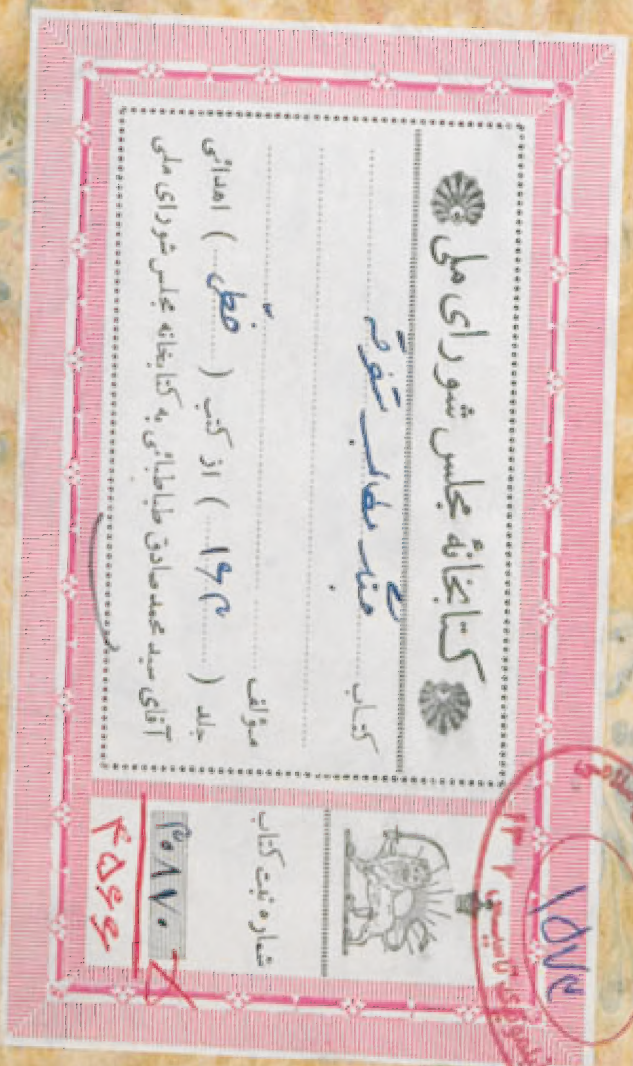 کتابخانهٔ مجلس شورای ملی
کتاب مطالب متفرقه
مؤلف
جلد ( ۱۶۳ ) از کتب ( خطی ) اهدائی
آقای سید محمد صادق طباطبائی به کتابخانه مجلس شورای ملی
شماره ثبت کتاب
۳۰۸۷۰
۴۵۶۶
۱۵۷۴